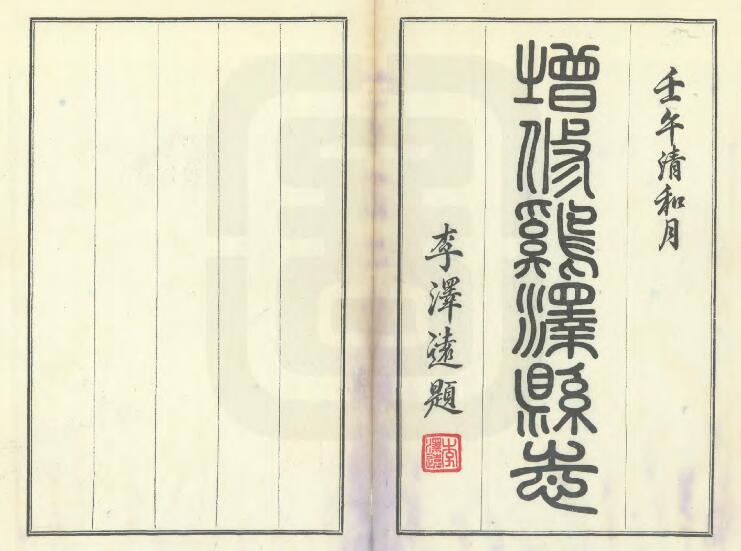 壬午清和月
增修鷄澤縣志
李澤遠題